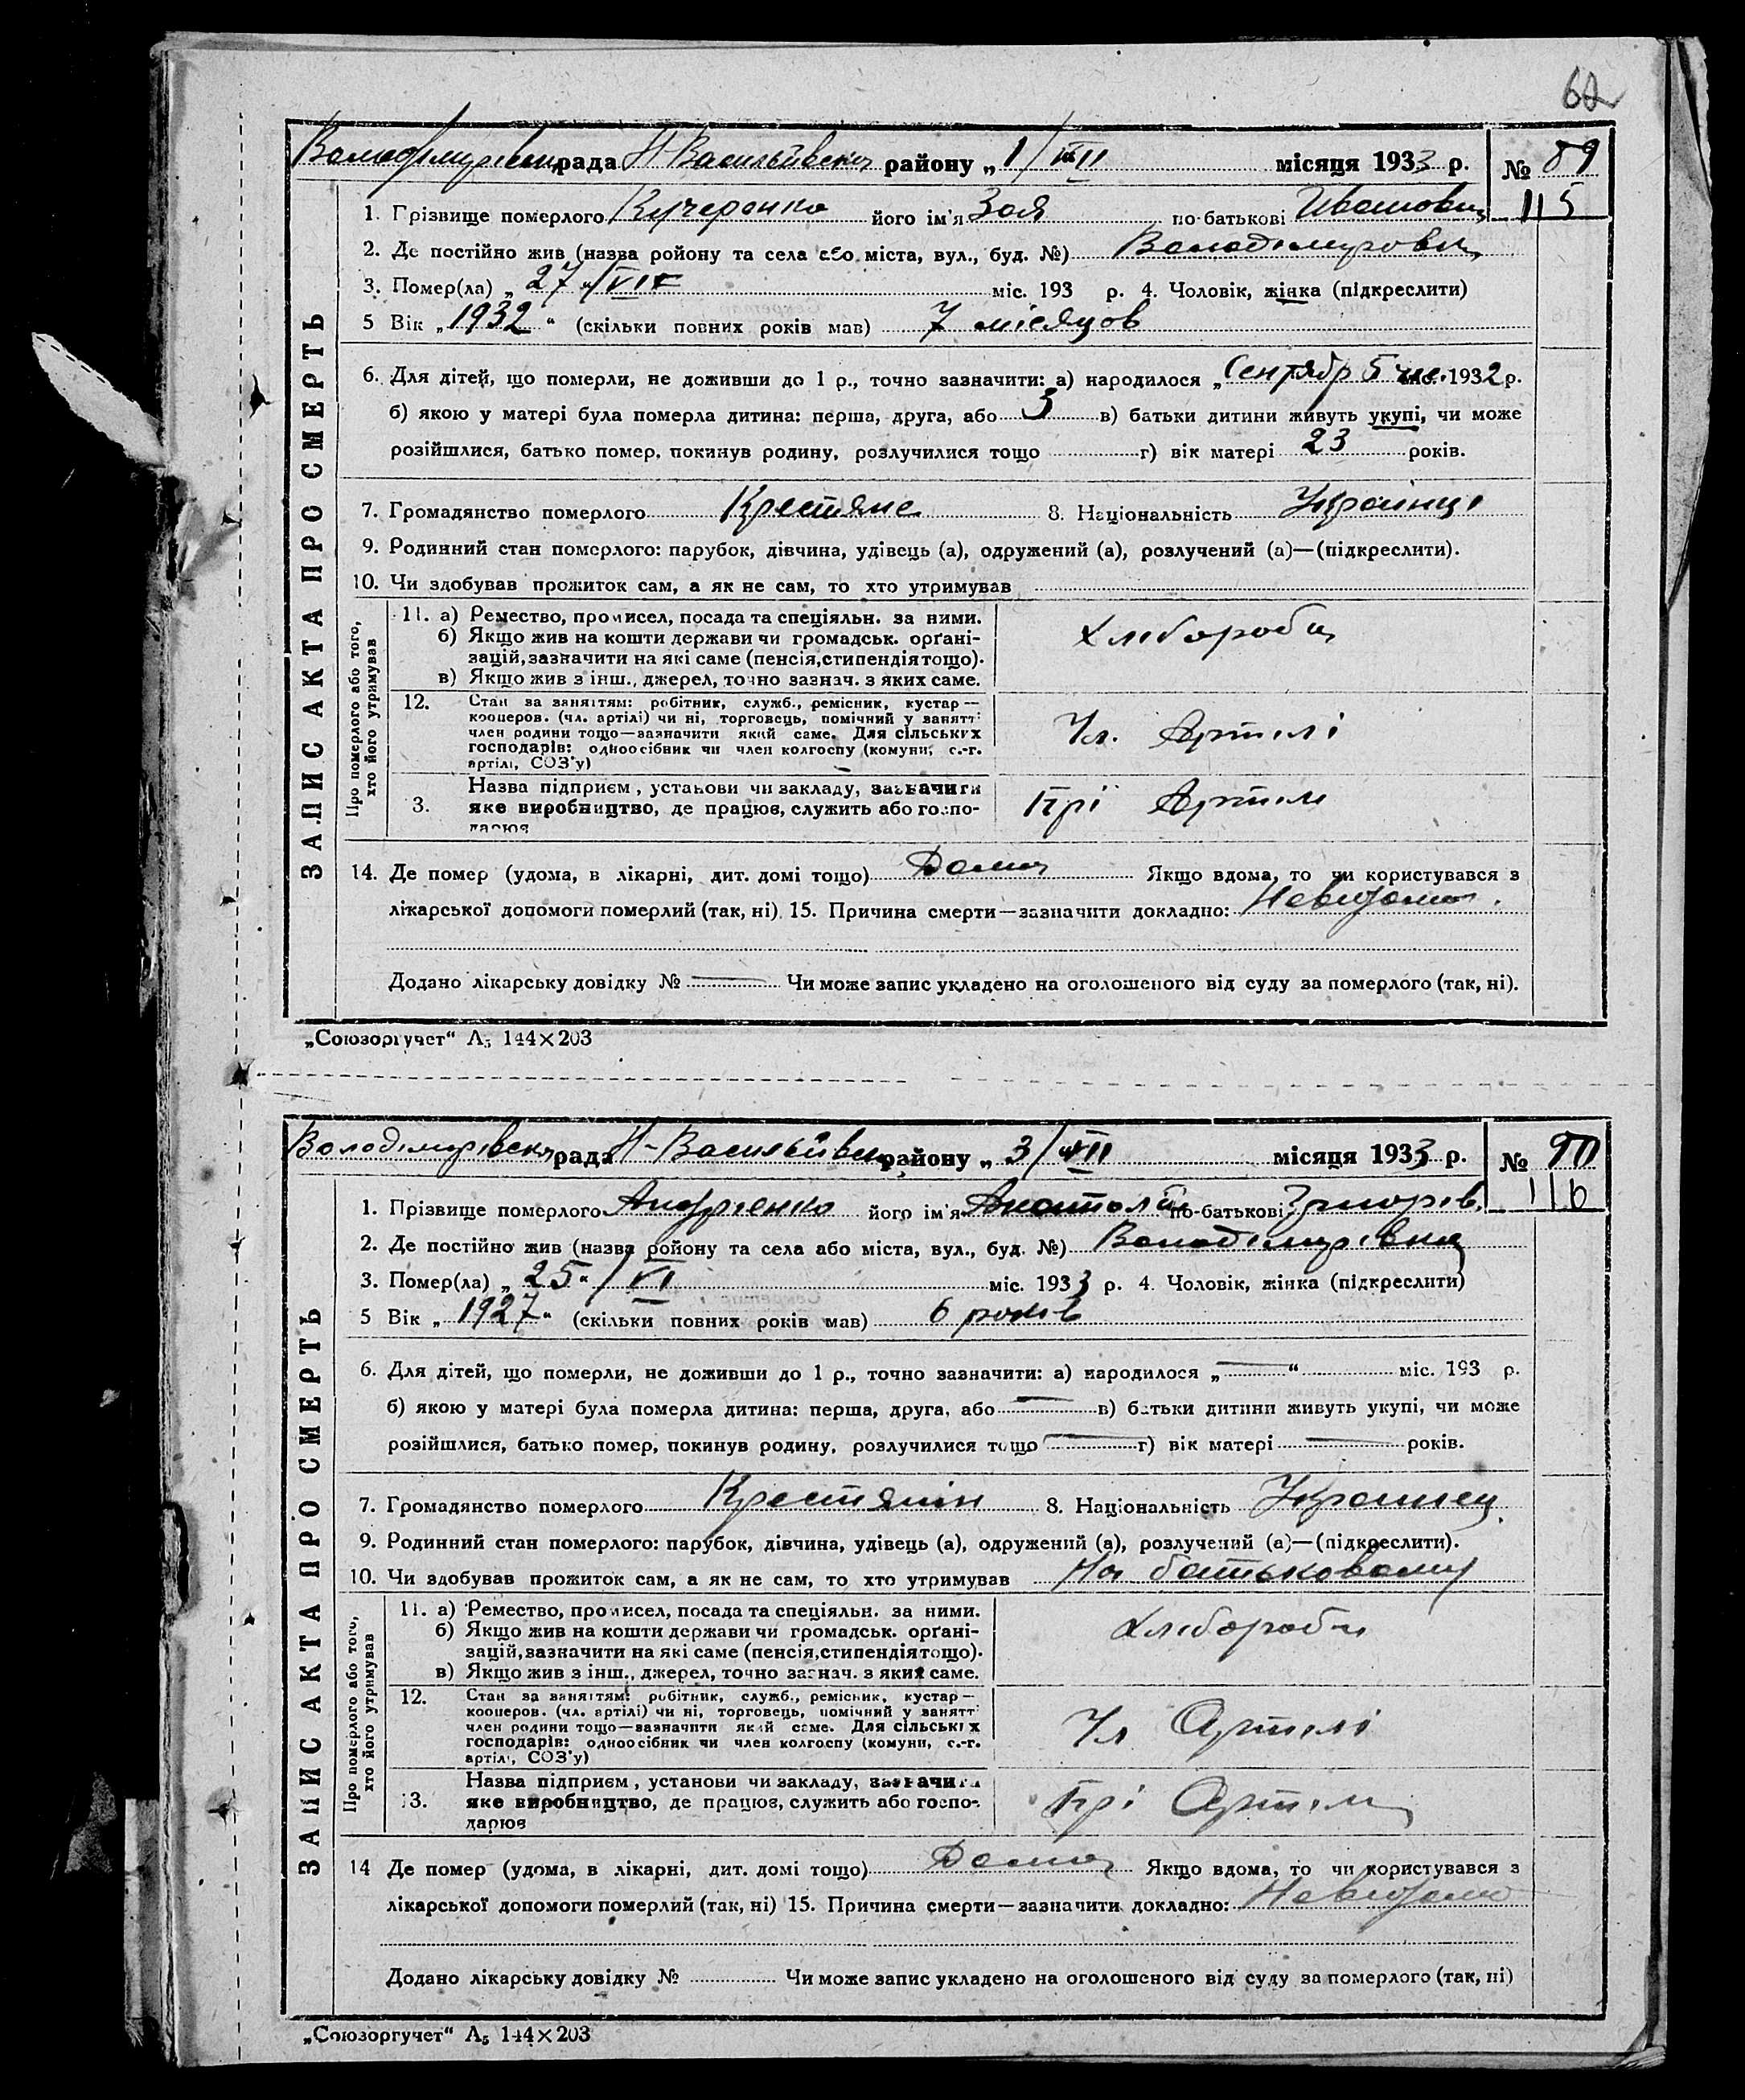 62
рада Н Васильївська району „ 1/VII місяця 1933 р. № 89
115
1. Прізвище померлого Кучеренко його ім'я Зоя по-батькові Ивановн
2. Де постійно жив (назва ройону та села або міста, вул., буд. №) Володімировка
3. Помер(ла) „ 27 "/VI міс. 193 р. 4. Чоловік, жінка (підкреслити)
5 Вік „ 1932 " (скільки повних років мав) 7 місяцов
6. Для дітей, що померли, не доживши до 1 р., точно зазначити: а) народилося „ Сентябр 5 міс. 1932 р.
б) якою у матері була померла дитина: перша, друга, або 3 в) батьки дитини живуть укупі, чи може
розійшлися, батько помер, покинув родину, розлучилися тощо г) вік матері 23 років.
7. Громадянство померлого Крестяне 8. Національність Украінці
9. Родинний стан померлого: парубок, дівчина, удівець (а), одружений (а), розлучений (а)—(підкреслити).
10. Чи здобував прожиток сам, а як не сам, то хто утримував
ЗАПИС АКТА ПРО СМЕРТЬ
Про померлого або того, хто його утримував
11. а) Ремество, промисел, посада та спеціяльн. за ними.
б) Якщо жив на кошти держави чи громадськ. орґані-
зацій, зазначити на які саме (пенсія, стипендія тощо).
в) Якщо жив з інш., джерел, точно зазнач. з яких саме.
Хлібороби
12. Стан за заняттям: робітник, служб., ремісник, кустар—
кооперов. (чл. артілі) чи ні, торговець, помічний у занятт:
член родини тощо—зазначити який саме. Для сільських
господарів: одноосібник чи член колгоспу (комуни, с.-г.
артілі, СОЗ'у)
Чл. Артилі
3. Назва підприєм, установи чи закладу, зазначити
яке виробництво, де працює, служить або госпо-
дарює
При Артилі
14. Де помер (удома, в лікарні, дит. домі тощо) Дома Якщо вдома, то чи користувався з
лікарської допомоги померлий (так, ні) 15. Причина смерти—зазначити докладно: Невидомо.
Додано лікарську довідку № — Чи може запис укладено на оголошеного від суду за померлого (так, ні).
„Союзоргучет" А5 144×203
Володімирівська рада Н-Васильївська району „ 3/VII місяця 1933 р. № 90
116
1. Прізвище померлого Андрієнко його ім'я Анатолій по-батькові Григорів.
2. Де постійно жив (назва ройону та села або міста, вул., буд. №) Володімирівка
3. Помер(ла) „ 25 "/VI міс. 1933 р. 4. Чоловік, жінка (підкреслити)
5 Вік „ 1927 " (скільки повних років мав) 6 років
6. Для дітей, що померли, не доживши до 1 р., точно зазначити: а) народилося „ — " міс. 193 р.
б) якою у матері була померла дитина: перша, друга, або — в) батьки дитини живуть укупі, чи може
розійшлися, батько помер, покинув родину, розлучилися тощо — г) вік матері — років.
7. Громадянство померлого Крестянін 8. Національність Украинец.
9. Родинний стан померлого: парубок, дівчина, удівець (а), одружений (а), розлучений (а)—(підкреслити).
10. Чи здобував прожиток сам, а як не сам, то хто утримував На батьковому
ЗАПИС АКТА ПРО СМЕРТЬ
Про померлого або того, хто його утримував
11. а) Ремество, промисел, посада та спеціяльн. за ними.
б) Якщо жив на кошти держави чи громадськ. орґані-
зацій, зазначити на які саме (пенсія, стипендія тощо).
в) Якщо жив з інш., джерел, точно зазнач. з яких саме.
Хлібороби
12. Стан за заняттям: робітник, служб., ремісник, кустар—
кооперов. (чл. артілі) чи ні, торговець, помічний у занятт:
член родини тощо—зазначити який саме. Для сільських
господарів: одноосібник чи член колгоспу (комуни, с.-г.
артілі, СОЗ'у)
Чл Артилі
13. Назва підприєм, установи чи закладу, зазначити
яке виробництво, де працює, служить або госпо-
дарює
При Артилі
14 Де помер (удома, в лікарні, дит. домі тощо) Дома Якщо вдома, то чи користувався з
лікарської допомоги померлий (так, ні) 15. Причина смерти—зазначити докладно: Невидомо
Додано лікарську довідку № Чи може запис укладено на оголошеного від суду за померлого (так, ні)
„Союзоргучет" А5 144×203